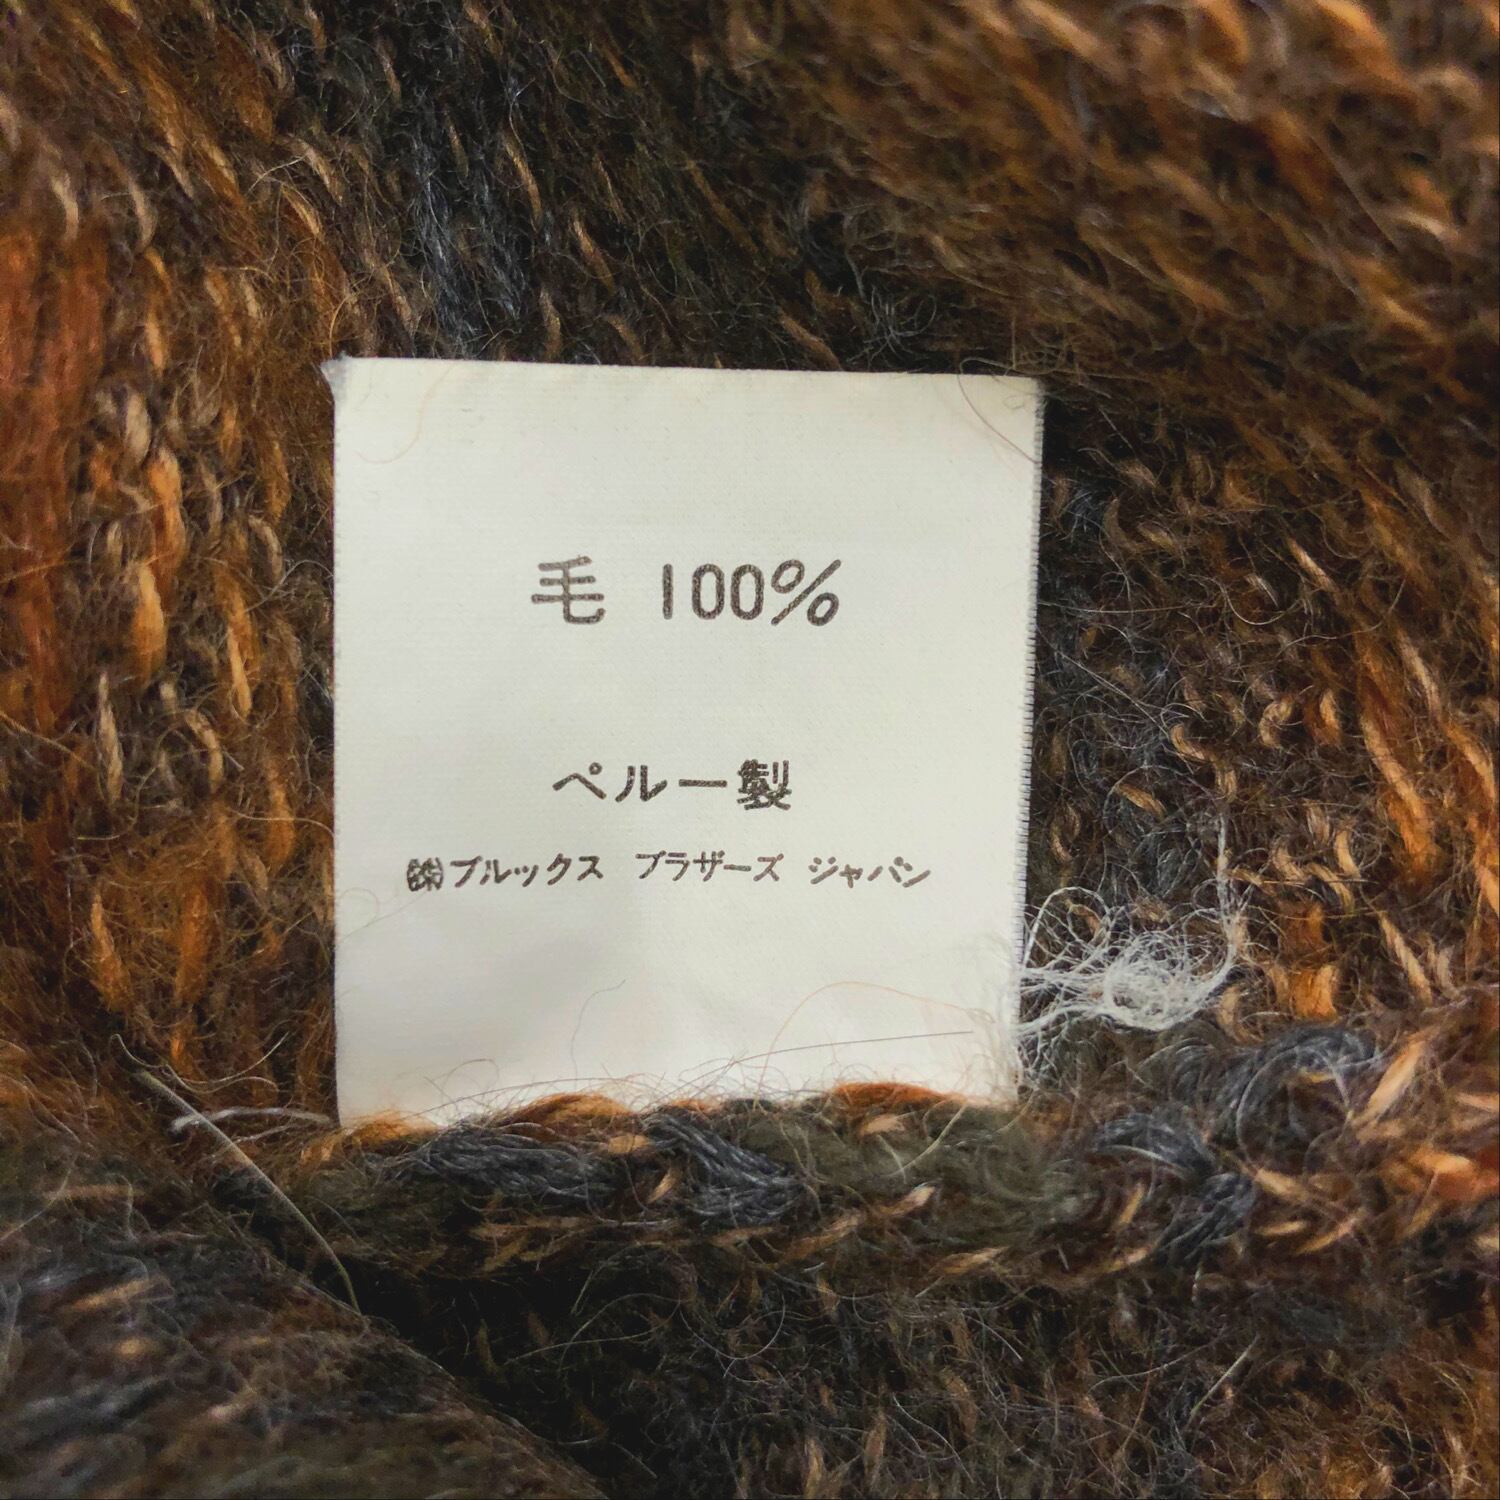 毛 100%
ペルー製
㈱ブルックス ブラザーズ ジャパン